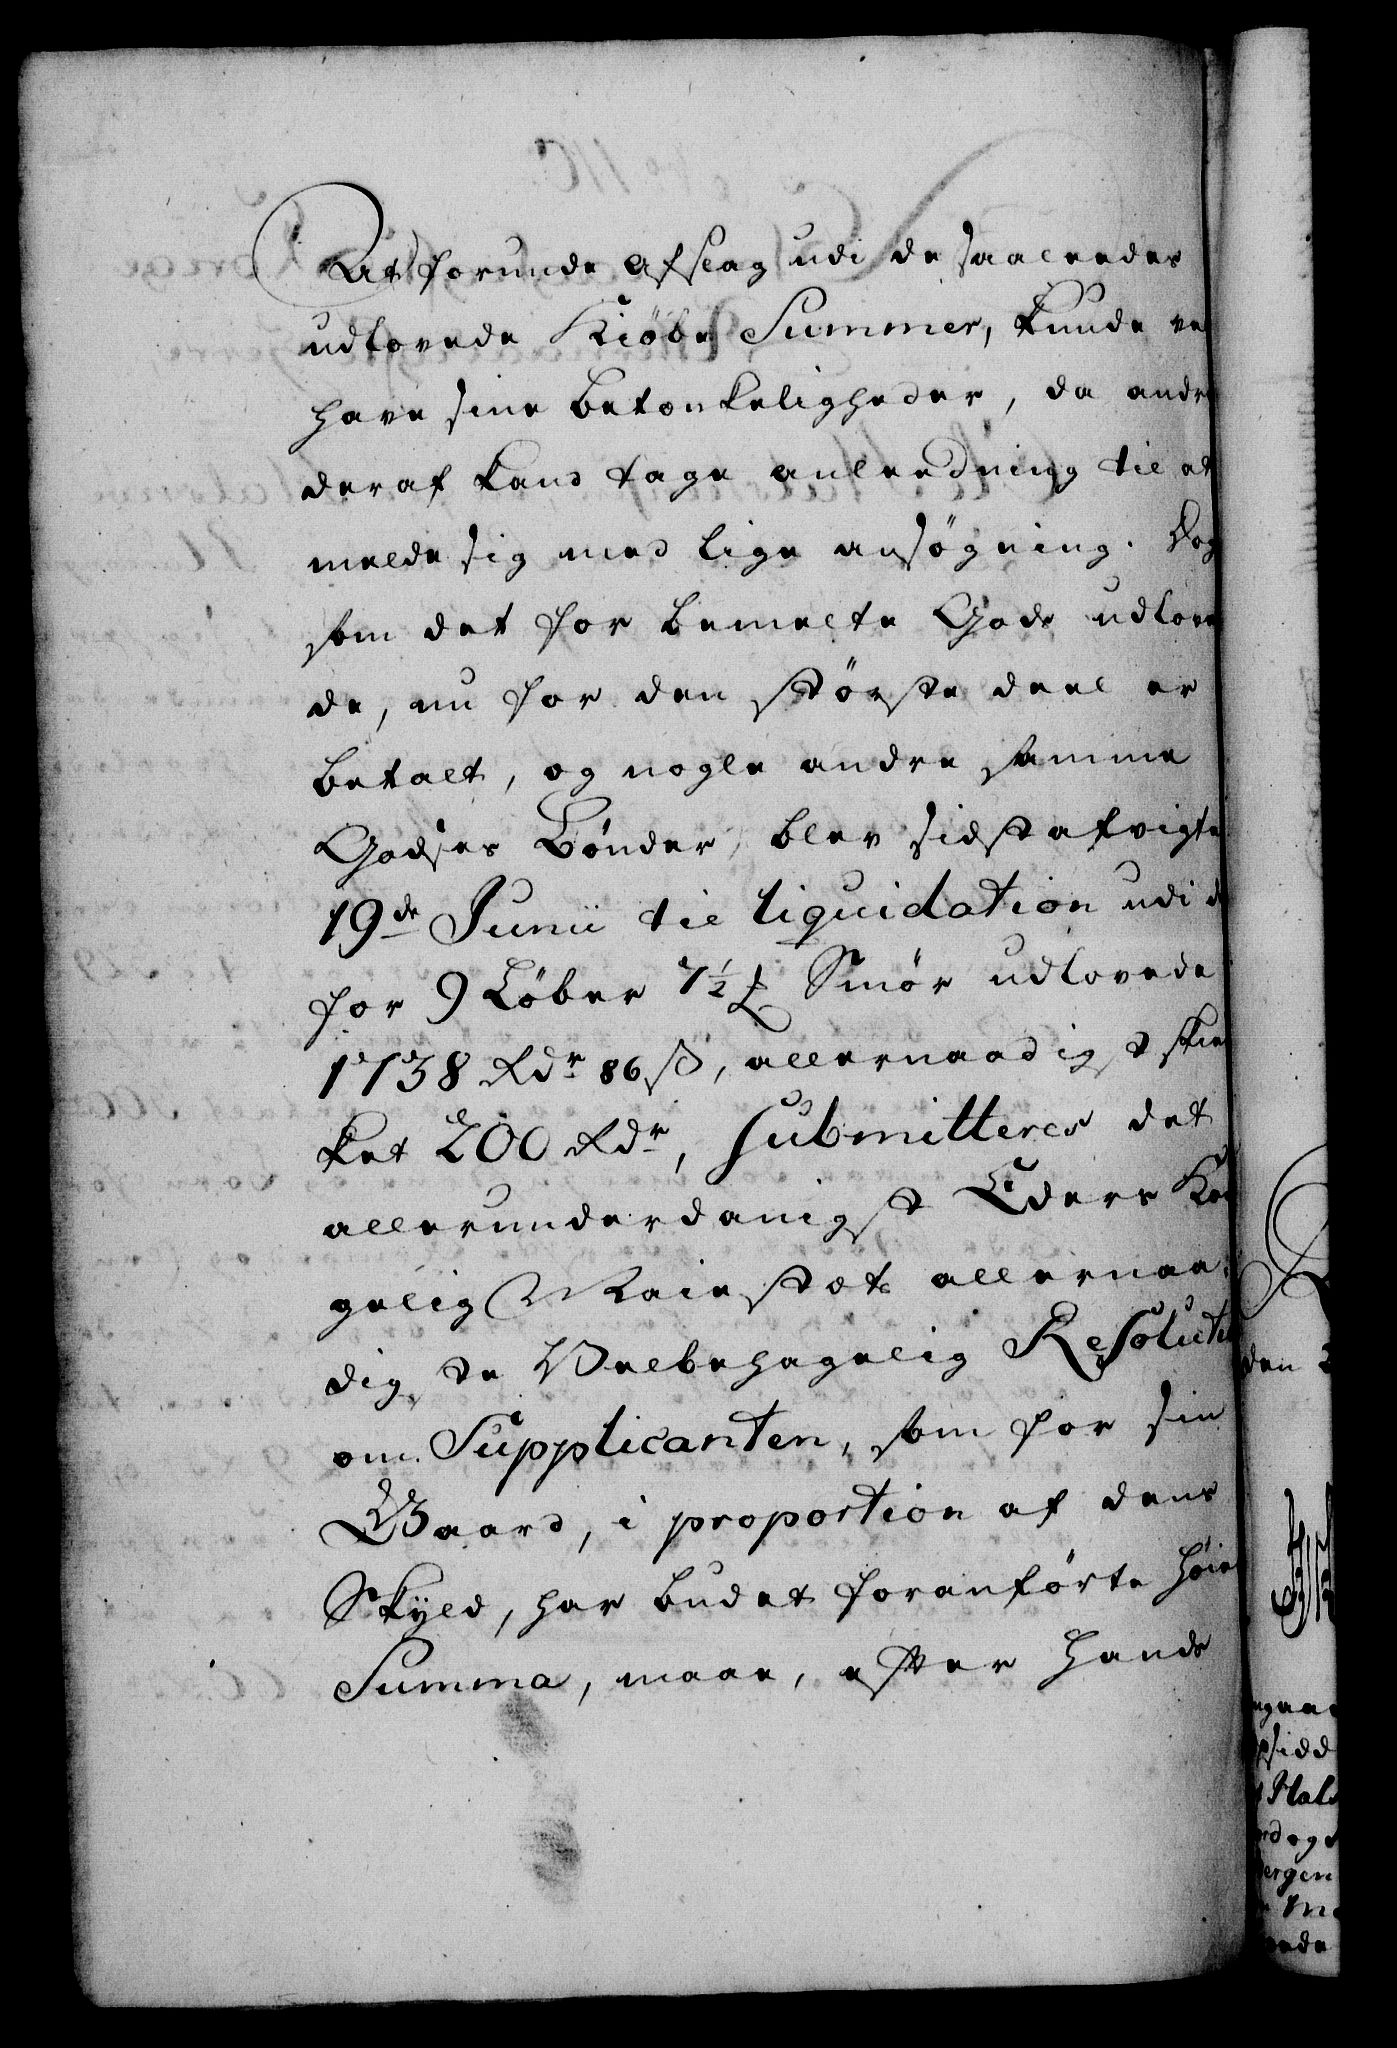 At forunde Afslag udi de saaleedes
udlovede Kiøbe Summer, kunde vel
have sine betænkeligheder, da andre
deraf kand tage anleedning til at
melde sig med lige ansøgning. Dog
som det for bemelte Gods udlove
de, nu for den største deel er
betalt, og nogle andre samme
Godses Bønder, blev sidstafvigte
19de Junii til liquidation udi de
for 9 Løber 7½ Smør udlovede
1738 Rdr 86 ß, allernaadigst skien
ket 200 Rdr, submitteres det
allerunderdanigst Eders Kon
gelig Maiestæts allernaa-
digste Velbehagelig Resolution
om Supplicanten, som for sin
Gaard, i proportion af dens
Skyld, har budet foranførte høie
Summa, maae, efter hands